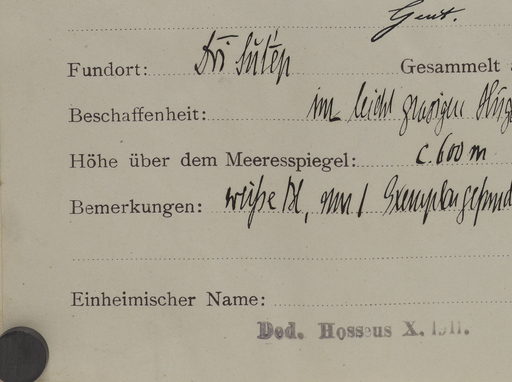 Gent.
Fundort: Doi Sutép Gesammelt
Beschaffenheit: im leicht grasigen
Höhe über dem Meeresspiegel: c. 600 m
Bemerkungen: weiße Bl, nur 1 Exemplar gefund
Einheimischer Name:
Ded. Hosseus X. 1911.